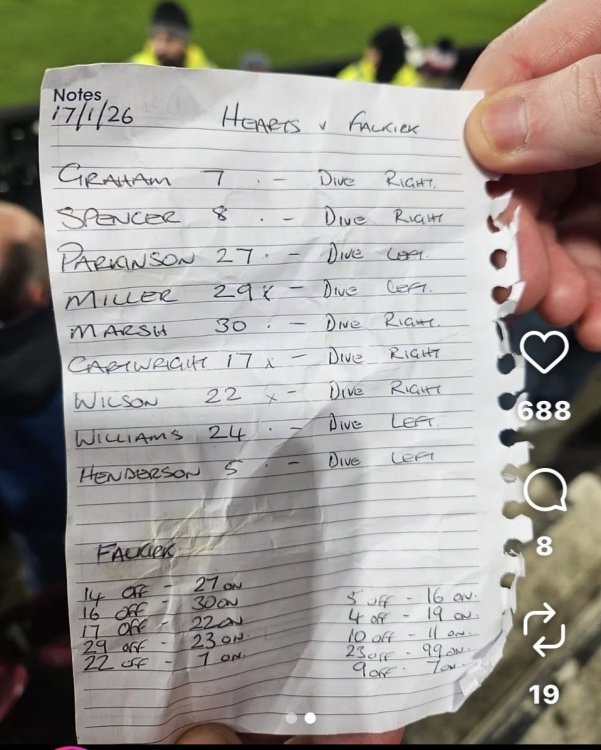 Notes
17/1/26 HEARTS v FALKIRK
GRAHAM 7 · - DIVE RIGHT.
SPENCER 8 · - DIVE RIGHT
PARKINSON 27 · - DIVE LEFT.
MILLER 29 x - DIVE LEFT.
MARSH 30 · - DIVE RIGHT.
CARTWRIGHT 17 x - DIVE RIGHT
WILSON 22 x - DIVE RIGHT
WILLIAMS 24 · - DIVE LEFT.
HENDERSON 5 · - DIVE LEFT
FALKIRK
14 OFF - 27 ON
16 OFF - 30 ON
17 OFF - 22 ON
29 OFF - 23 ON
22 OFF - 7 ON
5 OFF - 16 ON.
4 OFF - 19 ON.
10 OFF - 11 ON.
23 OFF - 99 ON.
9 OFF - 7 ON.
688
8
19